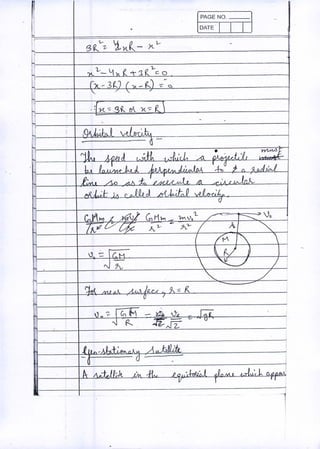 PAGE NO.
DATE
3R² = 4xR - x²
x² - 4xR + 3R² = 0
(x - 3R) (x - R) = 0
x = 3R or x = R
Orbital velocity
The speed with which a projectile must
be launched perpendicular to a radial
line so as to execute a circular
orbit is called orbital velocity.
GMm / r² = mv₀² / r
v₀ = √GM / r
v₀
r
M
R
For near surface, r = R
v₀ = √GM / R = vₑ / √2 = √gR
Geo-stationary Satellite
A satellite in the equitorial plane which appears